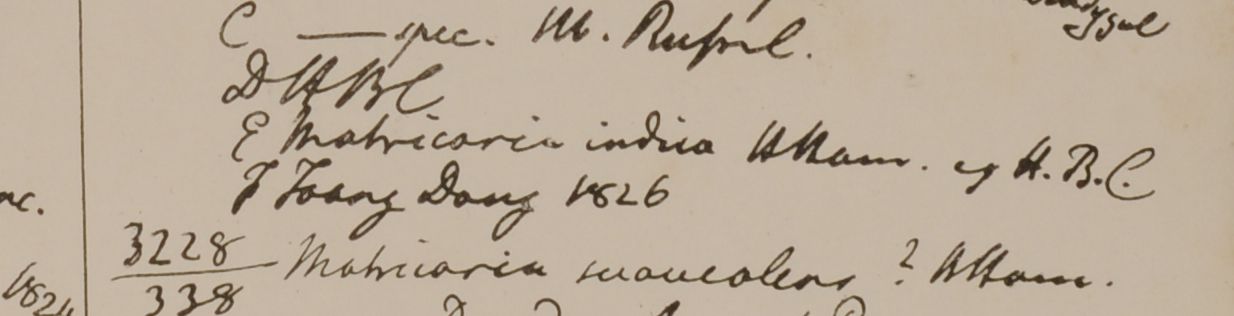 C — spec. M.
D H B C
E Matricaria indica HHam. ex H. B. C.
F Toong Dong 1826
3228 Matricaria suaveolens ? HHam.
338
1824